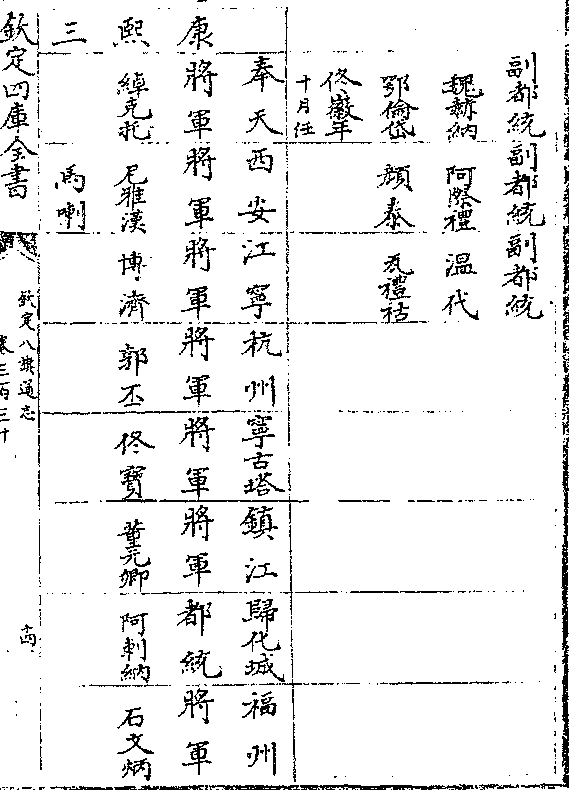 副都統 副都統 副都統
魏赫納 阿際禮 溫代
鄂倫岱 顏泰 瓦禮祜
佟徽年
十月任
奉天 西安 江寧 杭州 寧古塔 鎮江 歸化城 福州
康 將軍 將軍 將軍 將軍 將軍 將軍 都統 將軍
熙 綽克托 尼雅漢 博濟 郭丕 佟寶 董元卿 阿剌納 石文炳
三 馬喇
欽定四庫全書
欽定八旗通志
卷三百三十
十四